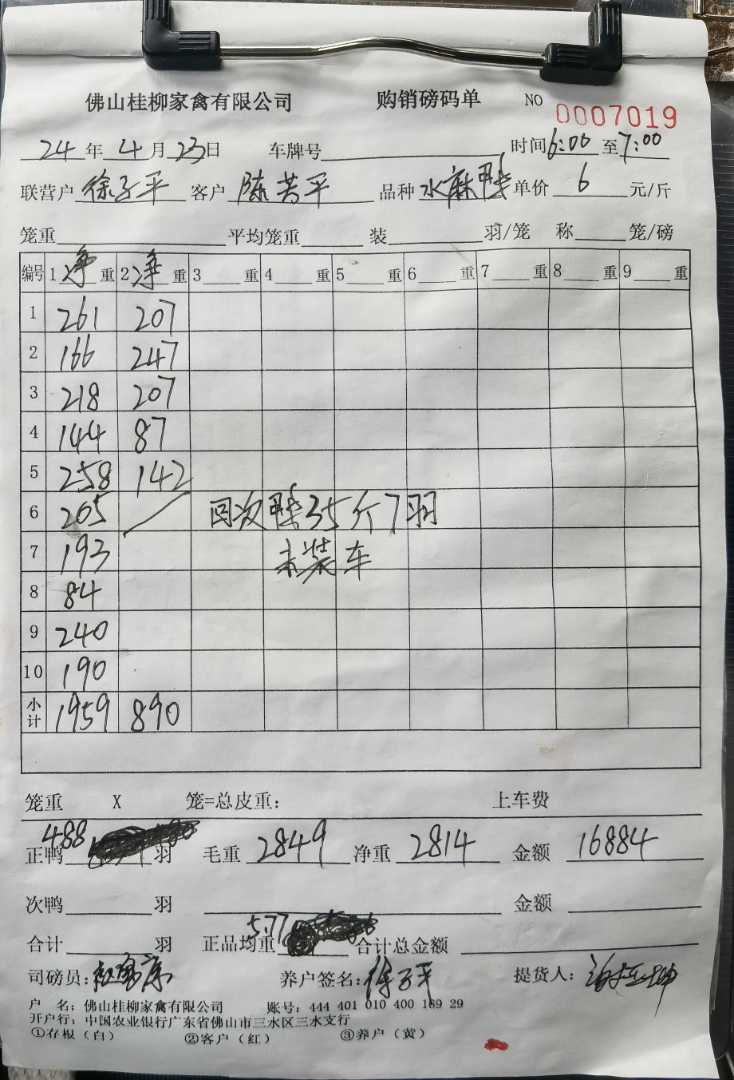 佛山桂柳家禽有限公司 购销磅码单 NO 0007019
24年4月23日 车牌号 时间6:00至7:00
联营户 徐子平 客户 陈芳平 品种 水麻鸭 单价 6 元/斤
笼重 平均笼重 装 羽/笼 称 笼/磅
编号 1 净 重 2 净 重 3 重 4 重 5 重 6 重 7 重 8 重 9 重
1 261 207
2 166 247
3 218 207
4 144 87
5 258 142
6 205 回次鸭35斤7羽
7 193 未装车
8 84
9 240
10 190
小计 1959 890
笼重 X 笼=总皮重: 上车费
正鸭 488 羽 毛重 2849 净重 2814 金额 16884
次鸭 羽 金额
合计 羽 正品均重 5.77 合计总金额
司磅员: 养户签名: 徐子平 提货人:
户 名: 佛山桂柳家禽有限公司 账号: 444 401 010 400 189 29
开户行: 中国农业银行广东省佛山市三水区三水支行
①存根(白) ②客户(红) ③养户(黄)